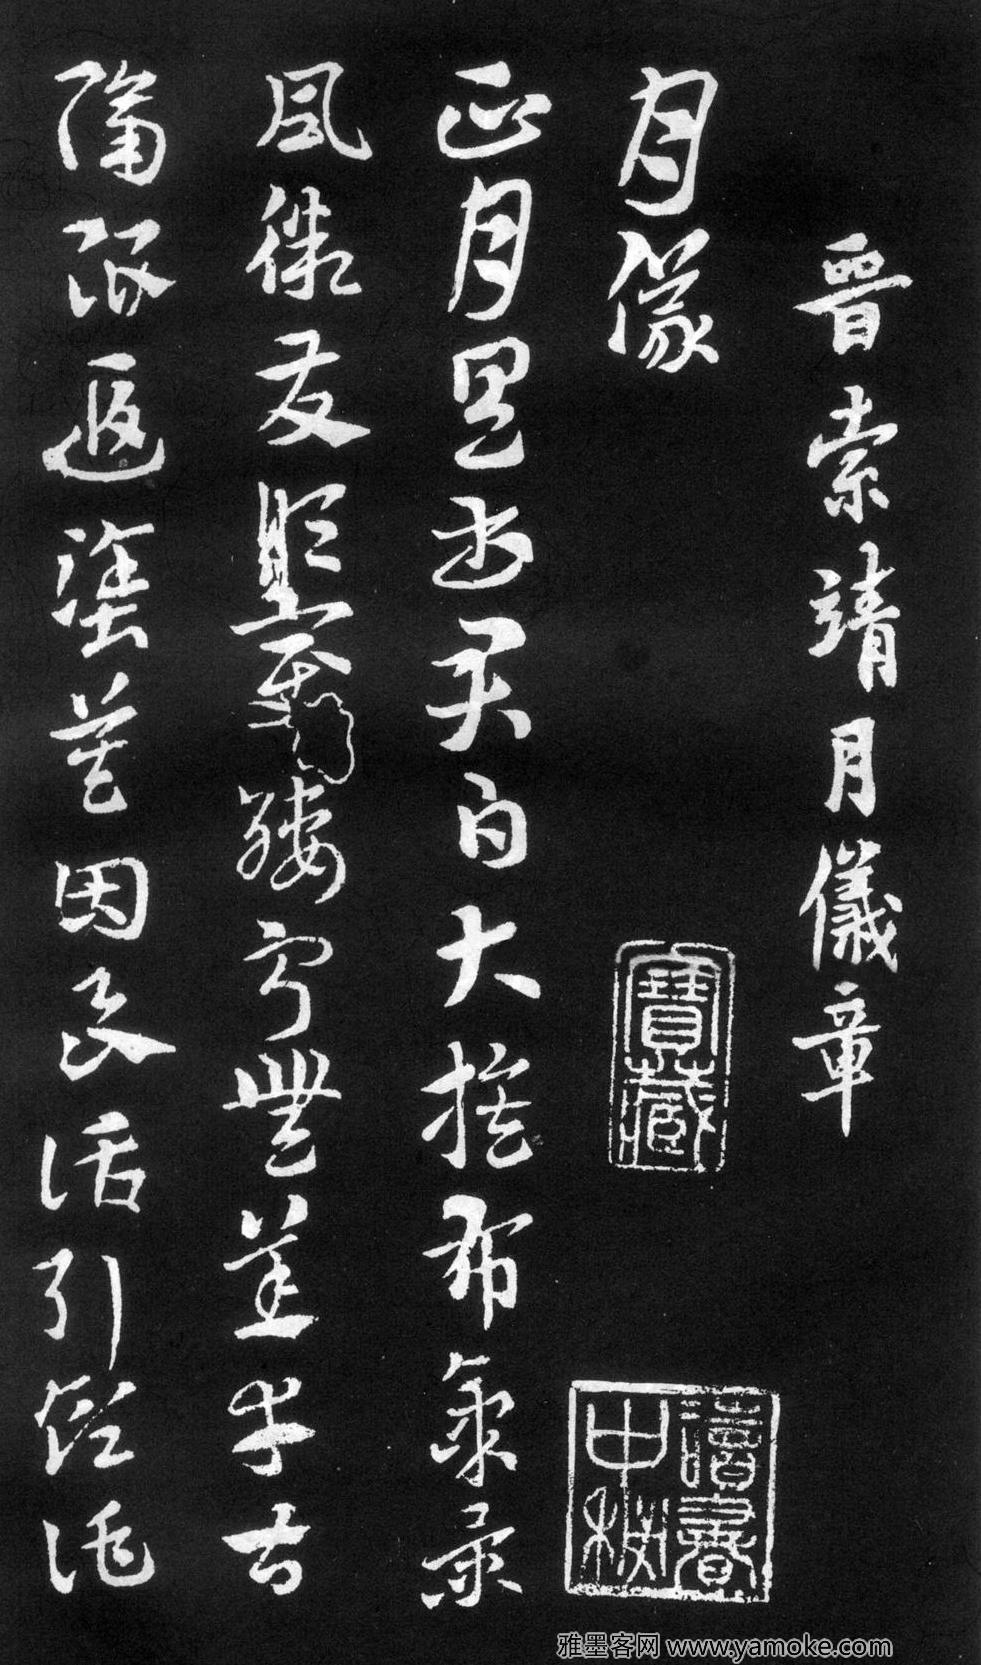 晉索靖月儀章
月儀
寶藏
讀書中秘
正月具書君白大蔟布氣景
風微發順變綏寧無恙幸甚
隔限遐塗莫因良話引領託
雅墨客网 www.yamoke.com